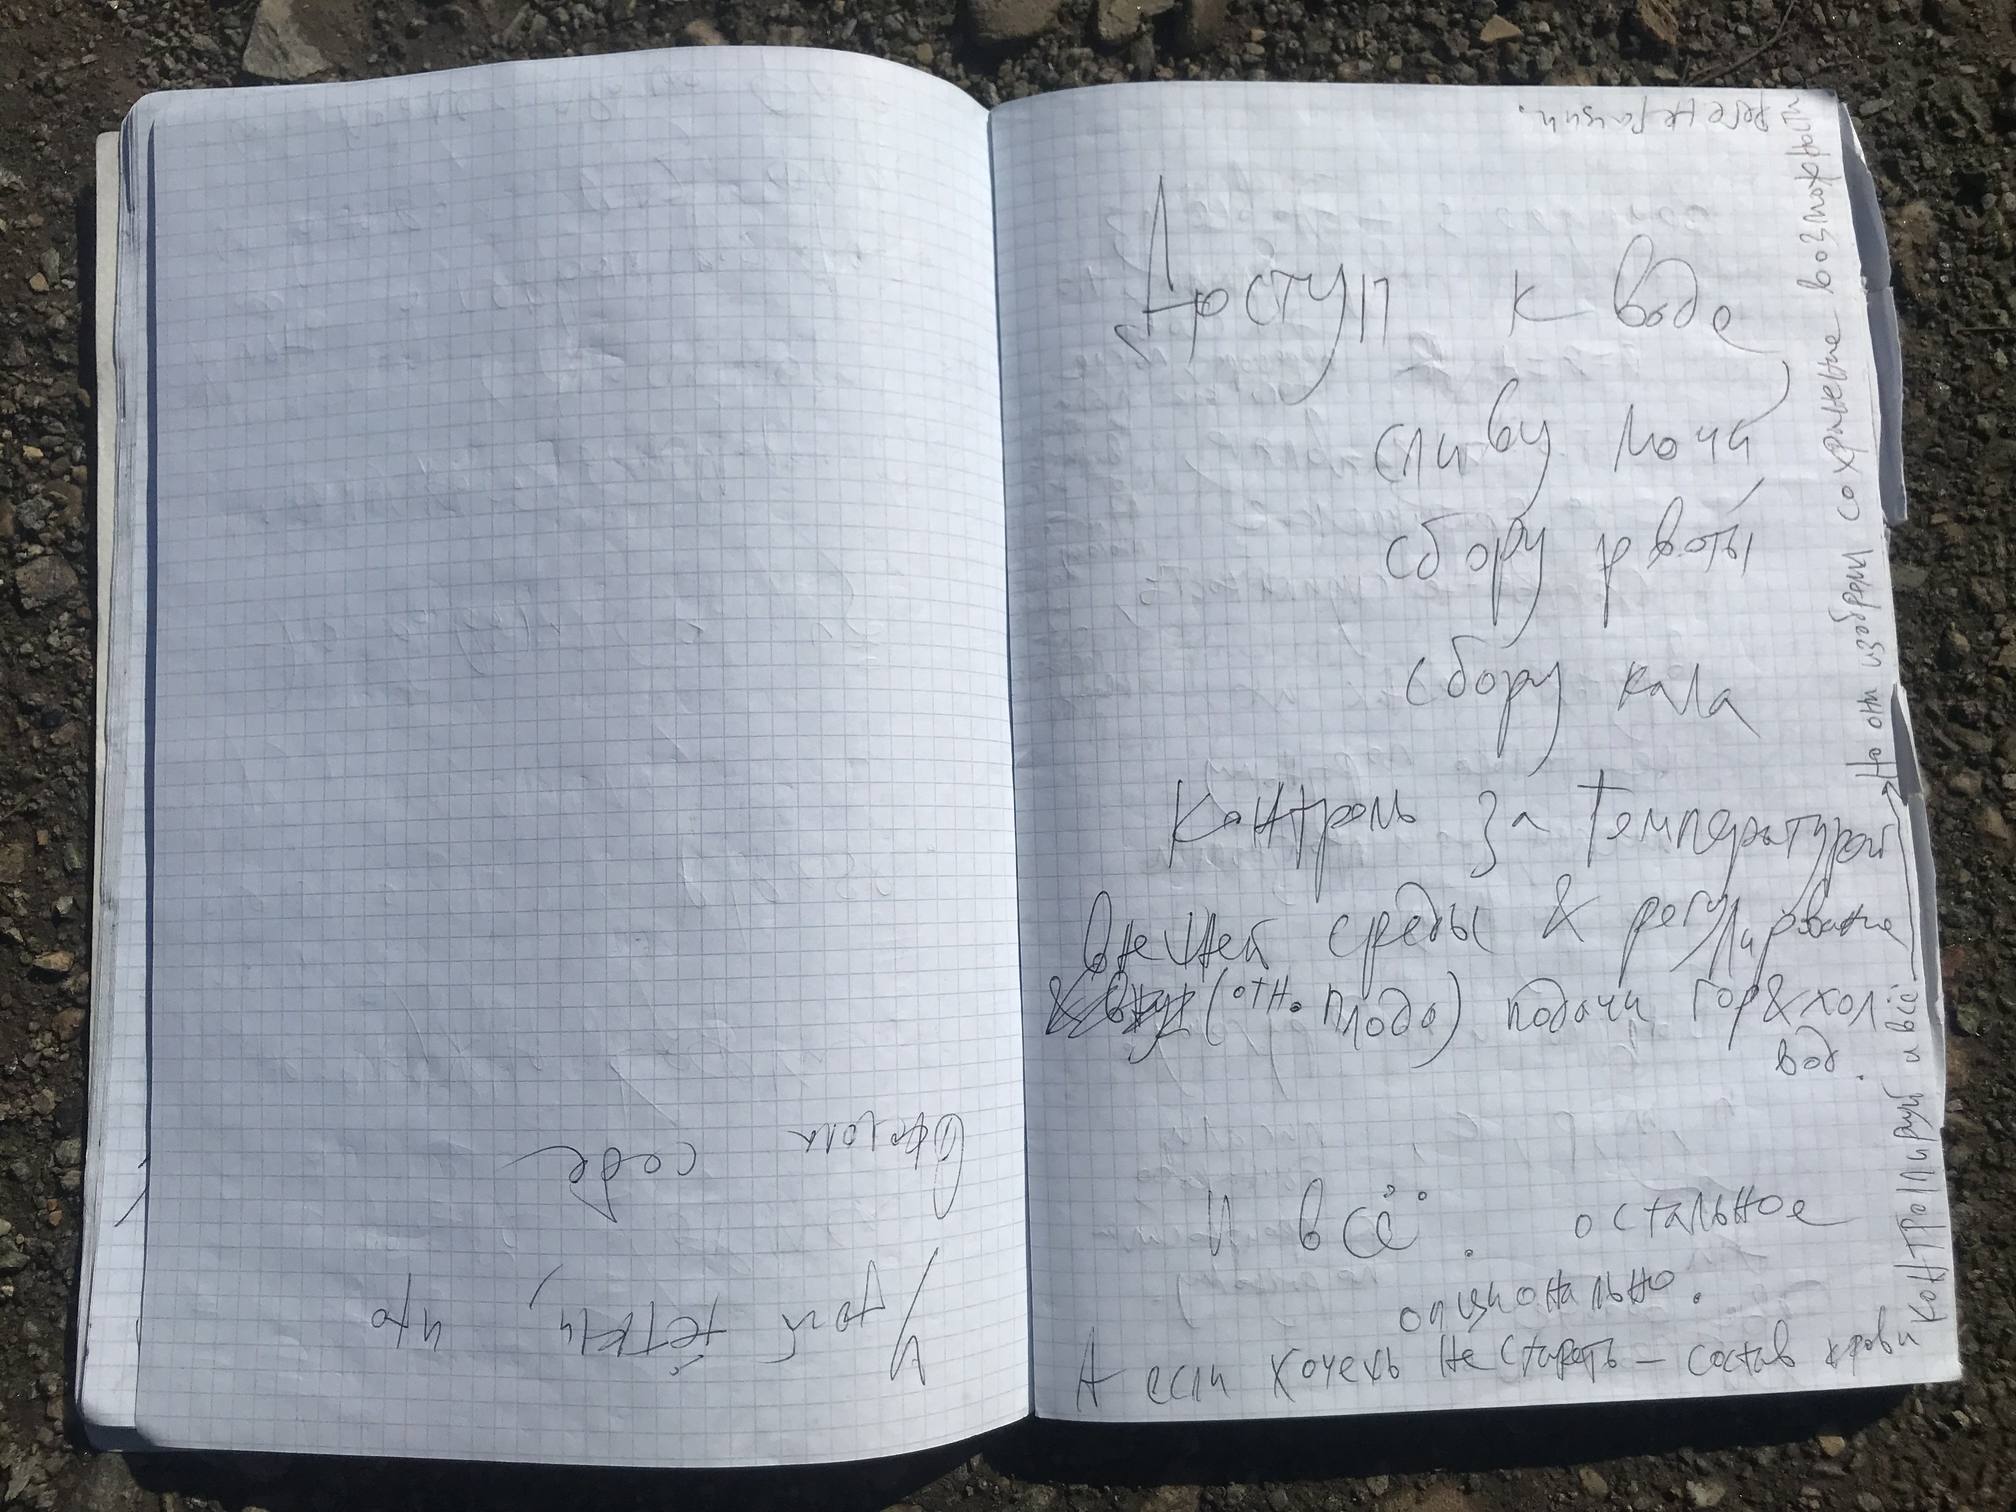 Доступ к воде,
сливу мочи
сбору рвоты
сбору кала
Контроль за температурой
внешней среды & регулирование
(отн. плода) подачи гор & хол
вод.
И всё. остальное
опционально.
А если хочехь не стареть – состав крови
контролируй и всё → Но они изобрели сохранение возможности
регенерации.
У той тётки, что
себе